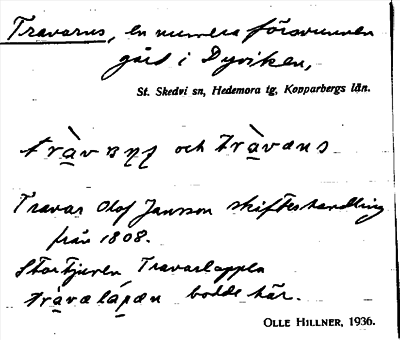 Travarns, en numera försvunnen
gård i Dyviken,
St. Skedvi sn, Hedemora tg, Kopparbergs län.
och
Travar Olof Jansson skifteshandling
från 1808.
Stortjuven Travarlappen
bodde här.
OLLE HILLNER, 1936.